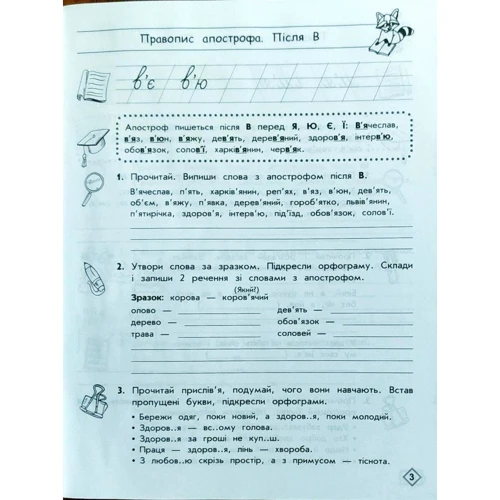 Правопис апострофа. Після В
в'є в'ю
Апостроф пишеться після В перед Я, Ю, Є, Ї: В'ячеслав,
в'яз, в'юн, в'яжу, дев'ять, дерев'яний, здоров'я, інтерв'ю,
обов'язок, солов'ї, харків'янин, черв'як.
1. Прочитай. Випиши слова з апострофом після В.
В'ячеслав, п'ять, харків'янин, реп'ях, в'яз, в'юн, дев'ять,
об'єм, в'яжу, п'явка, дерев'яний, гороб'ятко, львів'янин,
п'ятирічка, здоров'я, інтерв'ю, під'їзд, обов'язок, солов'ї.
2. Утвори слова за зразком. Підкресли орфограму. Склади
і запиши 2 речення зі словами з апострофом.
(Який?)
Зразок: корова — коров'ячий
олово — дев'ять —
дерево — обов'язок —
трава — соловей —
3. Прочитай прислів'я, подумай, чого вони навчають. Встав
пропущені букви, підкресли орфограми.
• Бережи одяг, поки новий, а здоров..я, поки молодий.
• Здоров..я — вс..ому голова.
• Здоров..я за гроші не куп..ш.
• Праця — здоров..я, лінь — хвороба.
• З любов..ю скрізь простір, а з примусом — тіснота.
3